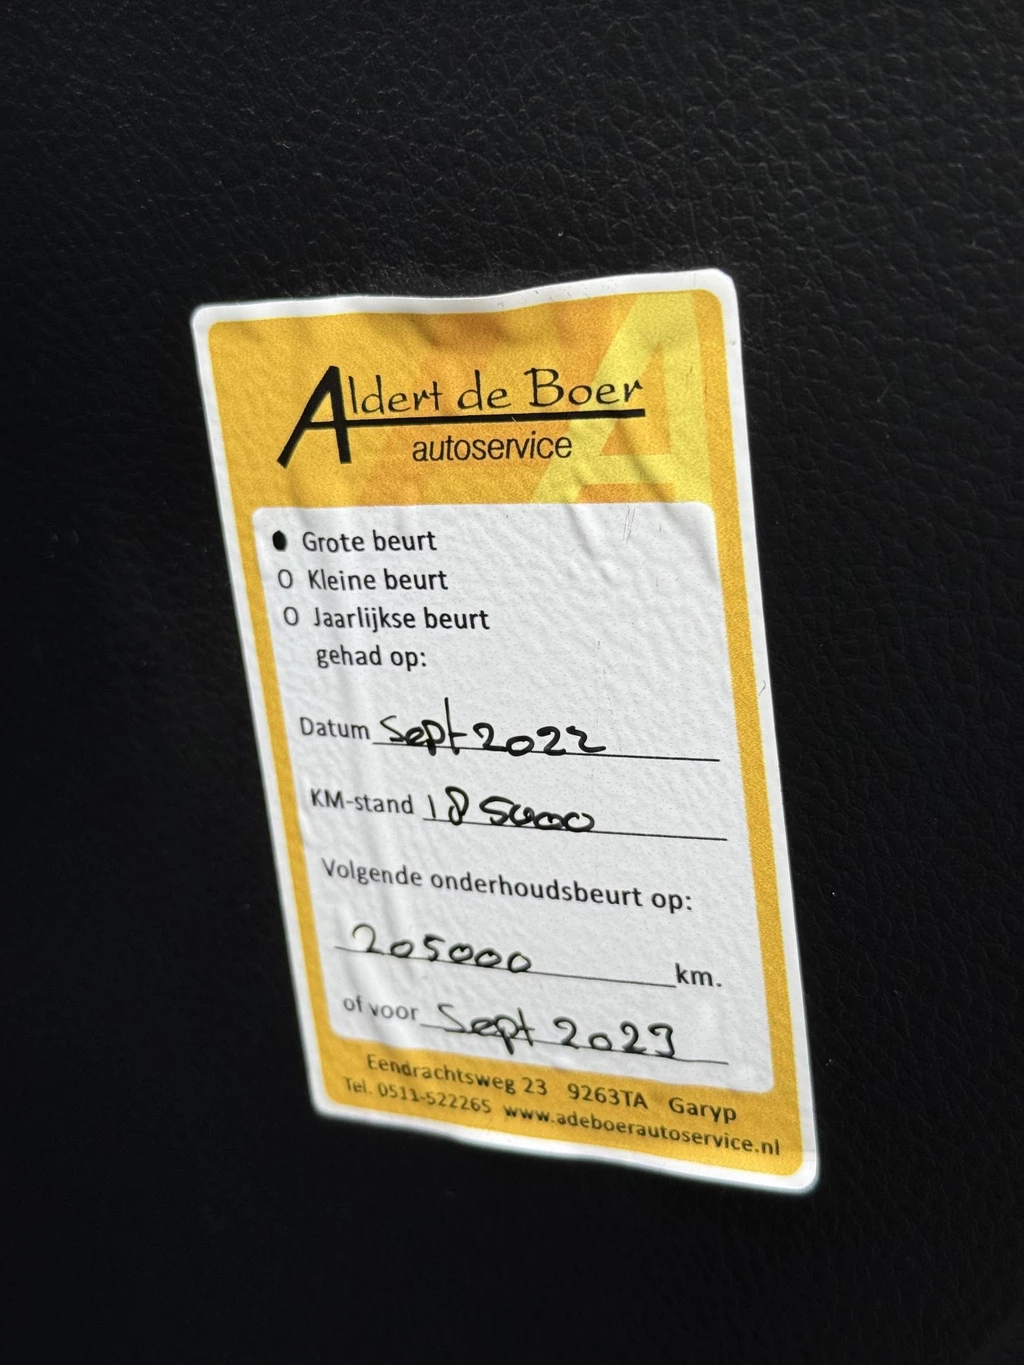 Aldert de Boer
autoservice
● Grote beurt
O Kleine beurt
O Jaarlijkse beurt
gehad op:
Datum Sept 2022
KM-stand 185000
Volgende onderhoudsbeurt op:
205000 km.
of voor Sept 2023
Eendrachtsweg 23 9263TA Garyp
Tel. 0511-522265 www.adeboerautoservice.nl